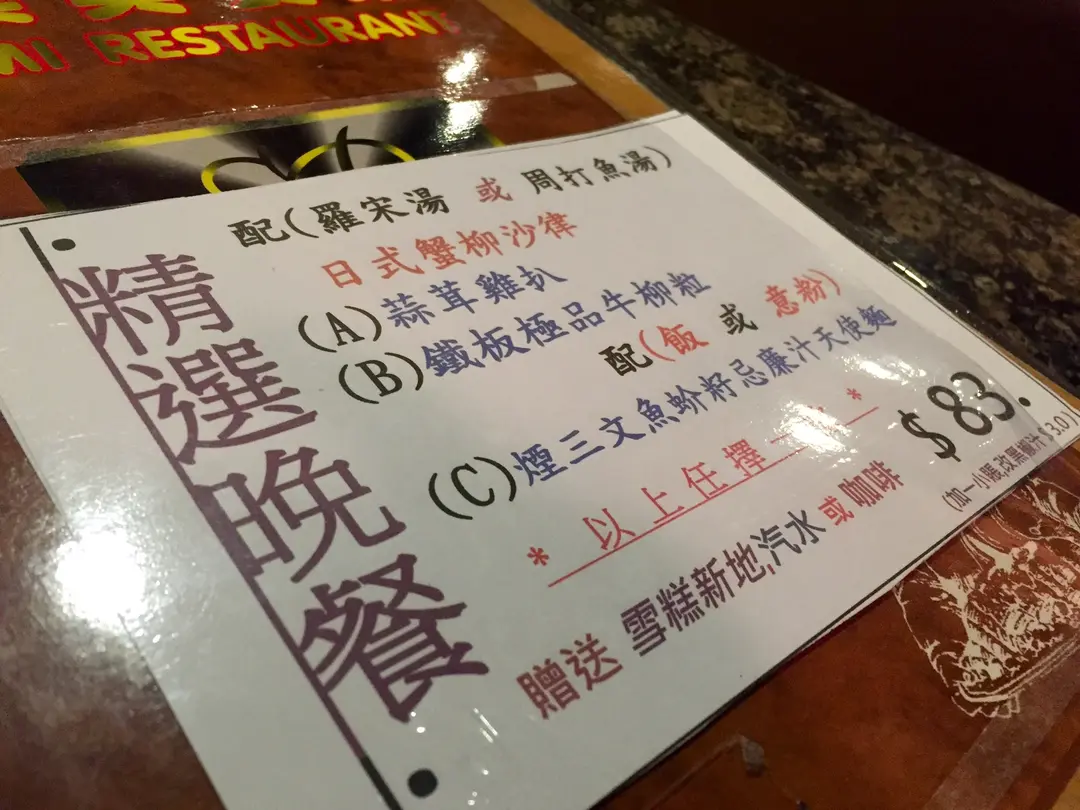 MI RESTAURANT
精選晚餐
配(羅宋湯 或 周打魚湯)
日式蟹柳沙律
(A)蒜茸雞扒
(B)鐵板極品牛柳粒
配(飯 或 意粉)
(C)煙三文魚蚧籽忌廉汁天使麵
* 以上任擇 *
$83.
(加一小賬,改黑椒汁$3.0)
贈送 雪糕新地,汽水 或 咖啡